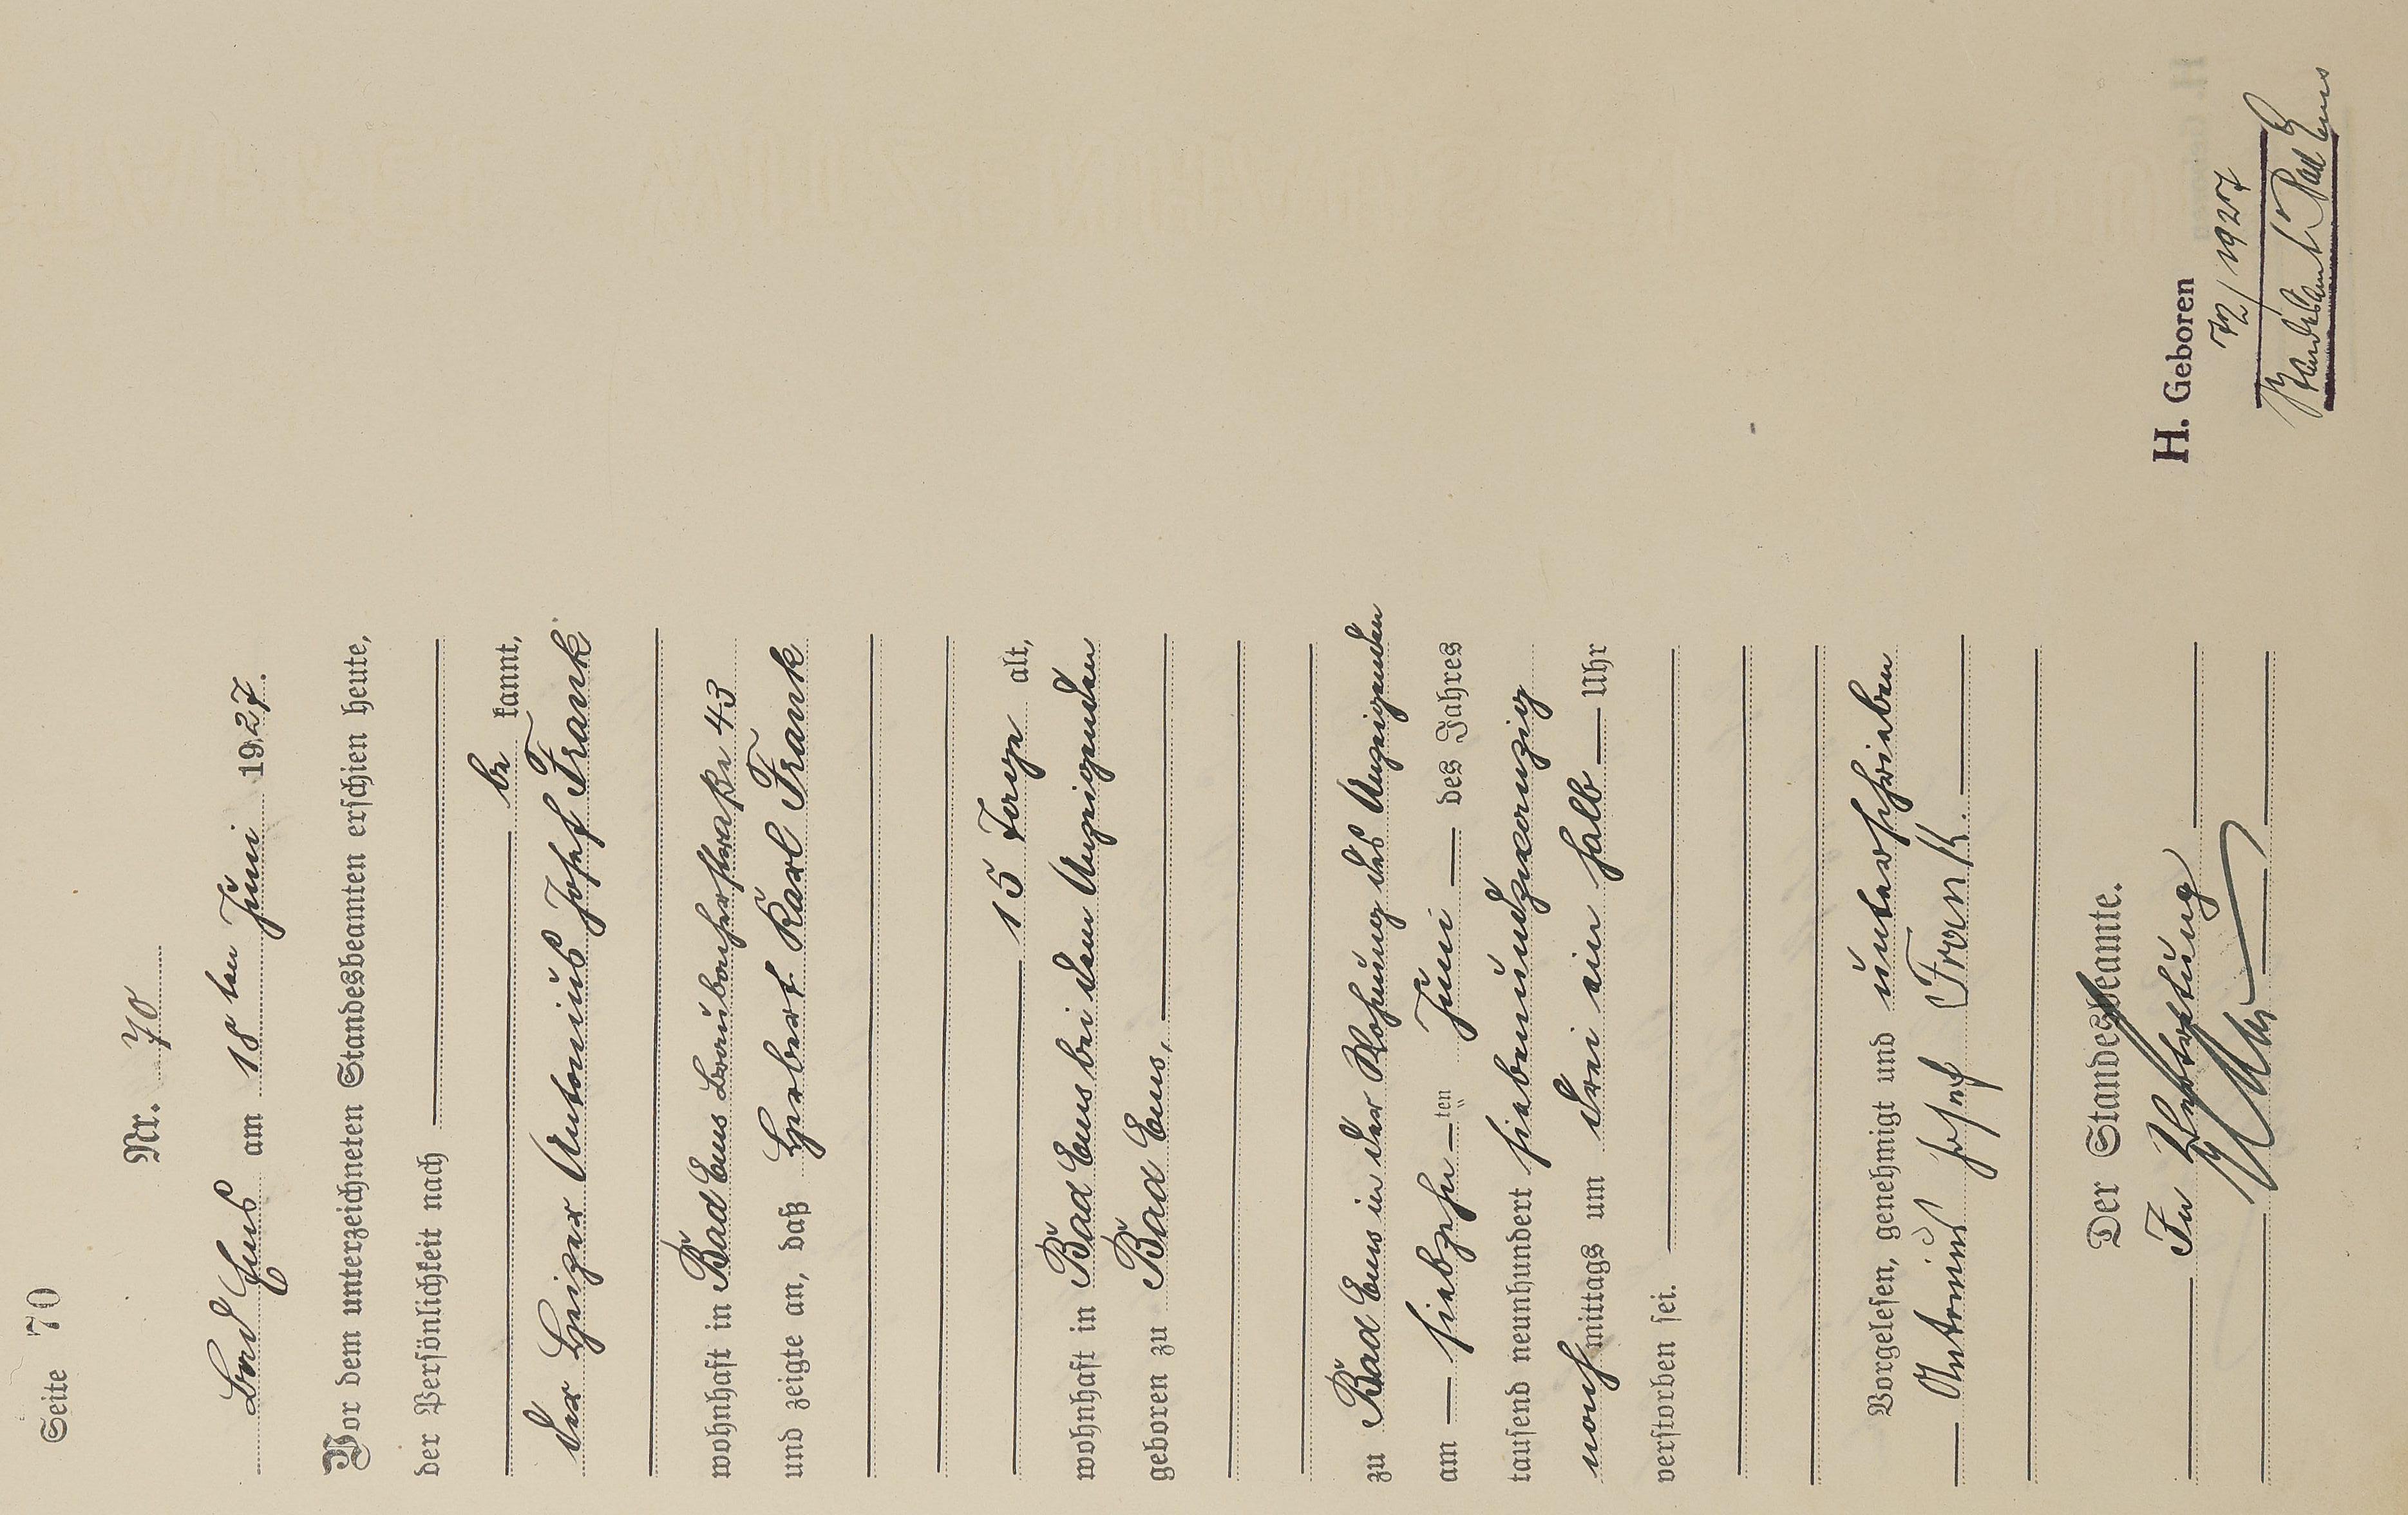 Seite 70
Nr. 70
Bad Ems am 18ten Juni 1927.
Vor dem unterzeichneten Standesbeamten erschien heute,
der Persönlichkeit nach
be kannt,
der Heizer Antonius Josef Frank
wohnhaft in Bad Ems Braubacherstraße 43
und zeigte an, daß Herbert Karl Frank
15 Tage alt,
wohnhaft in Bad Ems bei dem Anzeigenden
geboren zu Bad Ems,
zu Bad Ems in der Wohnung des Anzeigenden
am siebzehn ten Juni des Jahres
tausend neunhundert siebenundzwanzig
nachmittags um drei ein halb Uhr
verstorben sei.
Vorgelesen, genehmigt und unterschrieben
Antonius Josef Frank.
Der Standesbeamte.
In Vertretung
H. Geboren
72/1927
Standesamt Bad Ems